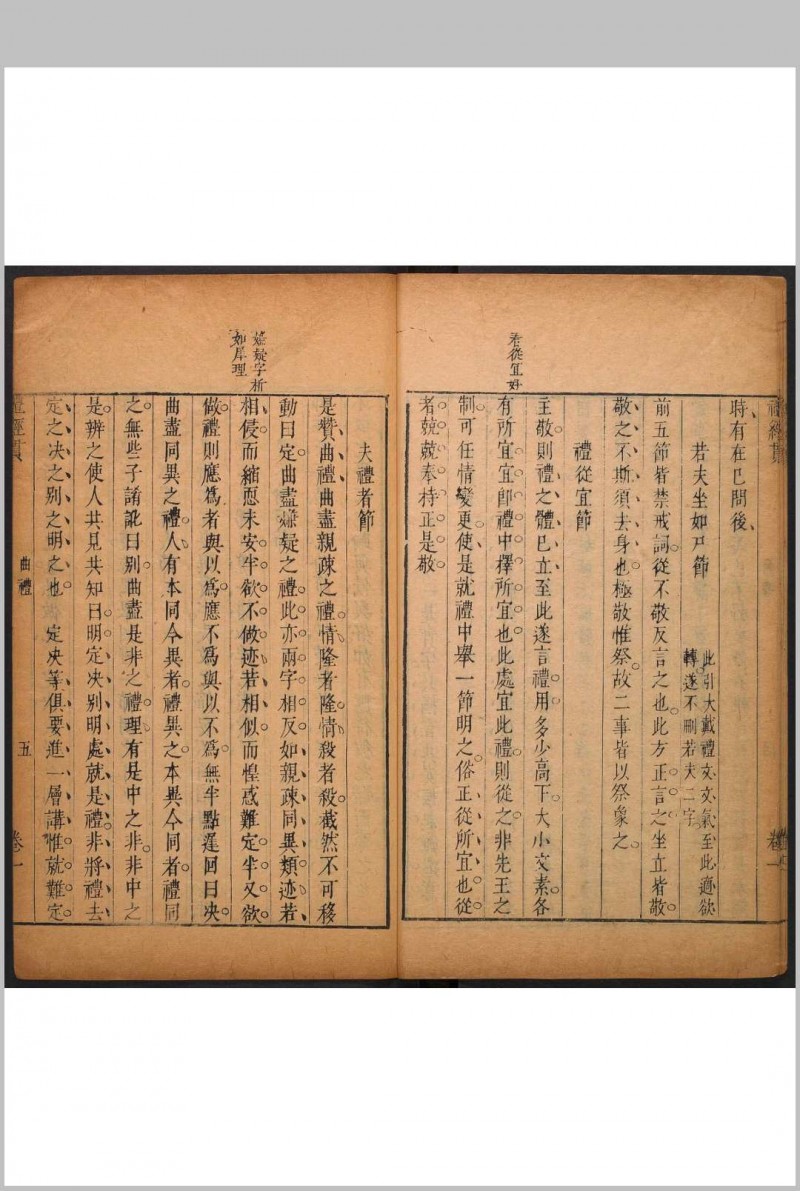 看從宜好
禮經貫
卷一
時有在已問後
若夫坐如尸節
此引大戴禮文文氣至此適欲
轉遂不刪若夫二字
前五節皆禁戒詞從不敬反言之也此方正言之坐立皆敬
敬之不斯須去身也極敬惟祭故二事皆以祭象之
禮從宜節
主敬則禮之體已立至此遂言禮用多少高下大小文素各
有所宜宜卽禮中擇所宜也此處宜此禮則從之非先王之
制可任情變更使是就禮中舉一節明之俗正從所宜也從
者兢兢奉持正是敬
嫌疑字析
如犀理
夫禮者節
是贊曲禮曲盡親疎之禮情隆者隆情殺者殺截然不可移
動曰定曲盡嫌疑之禮此亦兩字相反如親疎同異類迹若
相侵而縮恧未安半欲不做迹若相似而惶惑難定半又欲
做禮則應爲者與以爲應不爲與以不爲無半點遲回曰决
曲盡同異之禮人有本同今異者禮異之本異今同者禮同
之無些子諸訛曰别曲盡是非之禮理有是中之非非中之
是辨之使人共見共知曰明定决别明處就是禮非將禮去
定之决之别之明之也 定决等俱要進一層講惟就難定
禮經貫
曲禮
五
卷一